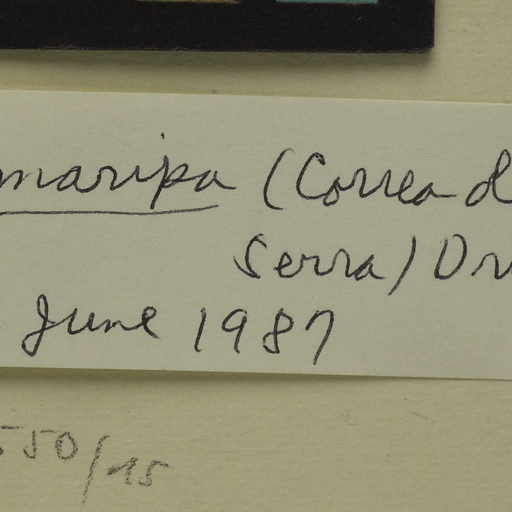 maripa (Correa d
Serra) Dr
June 1987
550/15